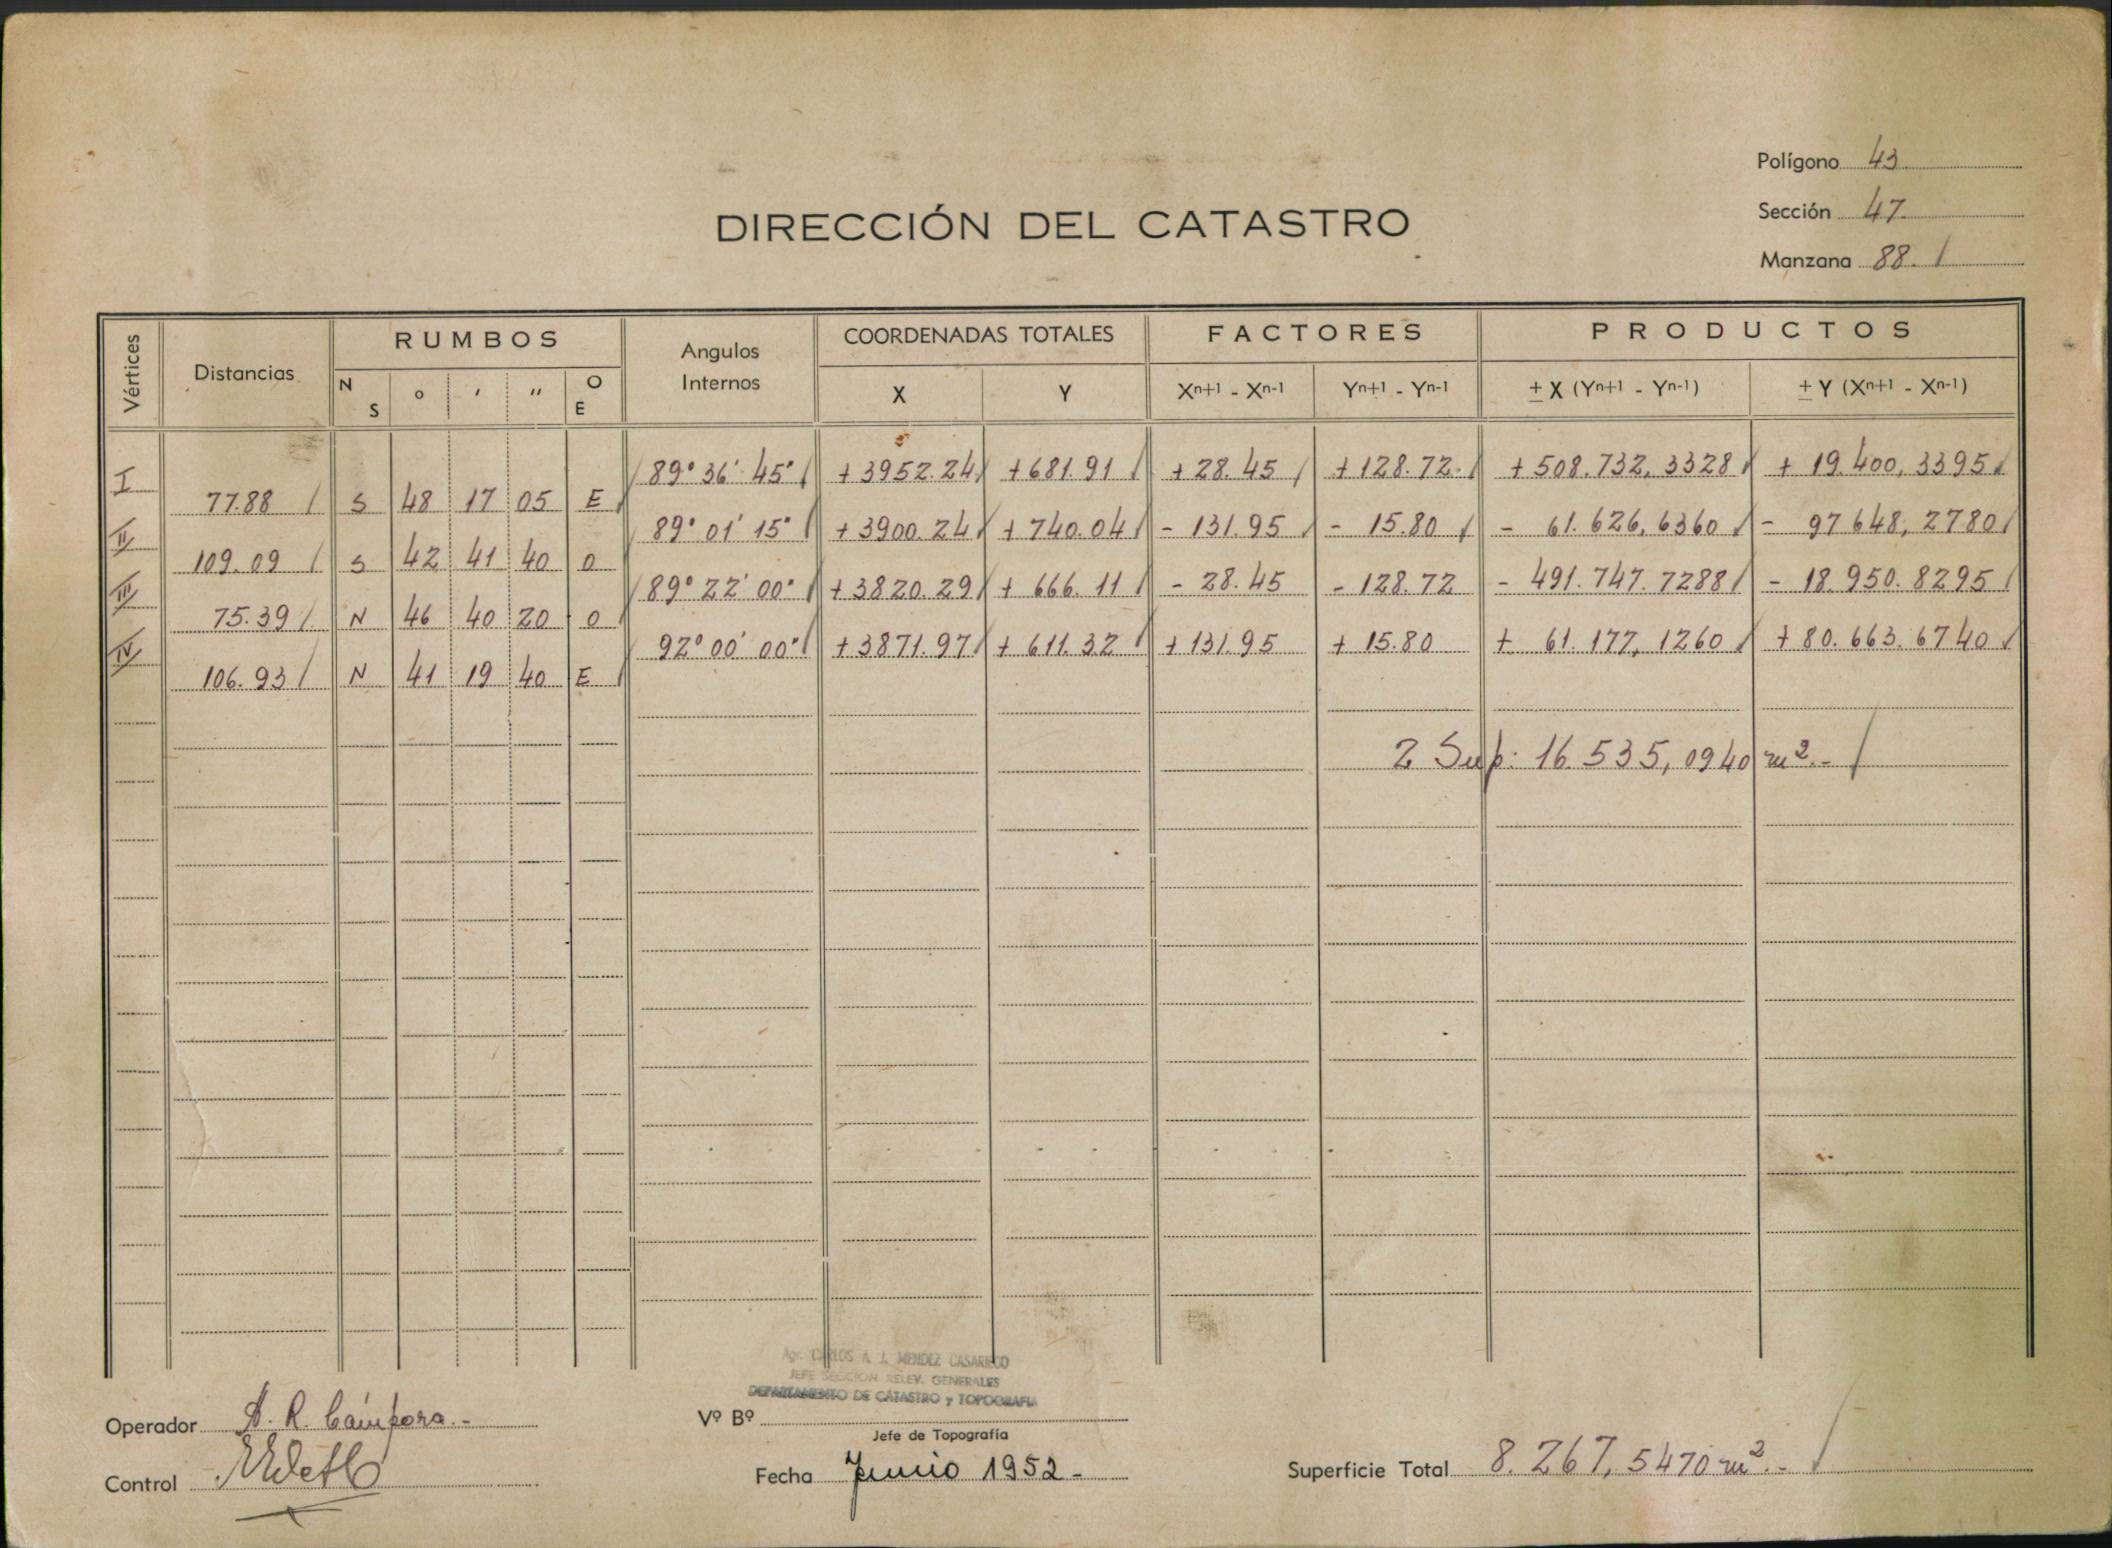 Polígono 43.
Sección 47.
Manzana 88.
DIRECCIÓN DEL CATASTRO
Vértices
Distancias
RUMBOS
N S
o
'
"
O E
Angulos Internos
COORDENADAS TOTALES
X
Y
FACTORES
Xn+1 - Xn-1
Yn+1 - Yn-1
PRODUCTOS
± X (Yn+1 - Yn-1)
± Y (Xn+1 - Xn-1)
I 89° 36' 45" +3952.24 +681.91 +28.45 +128.72. +508.732,3328 + 19.400,3395
77.88 S 48 17 05 E
II 89° 01' 15" +3900.24 +740.04 - 131.95 - 15.80 - 61.626,6360 - 97648,2780
109.09 S 42 41 40 O
III 89° 22' 00" +3820.29 + 666.11 - 28.45 - 128.72 - 491.747.7288 - 18.950.8295
75.39 N 46 40 20 O
IV 92° 00' 00" +3871.97 + 611.32 +131.95 + 15.80 + 61.177,1260 +80.663.6740
106.93 N 41 19 40 E
2 Sup: 16.535,0940 m².-
Agr. CARLOS A. J. MENDEZ CASARIEGO
JEFE SECCION RELEV. GENERALES
DEPARTAMENTO DE CATASTRO y TOPOGRAFIA
Operador A. R. Cámpora.-
Vº Bº
Jefe de Topografía
Control
Fecha Junio 1952-
Superficie Total 8.267,5470 m².-